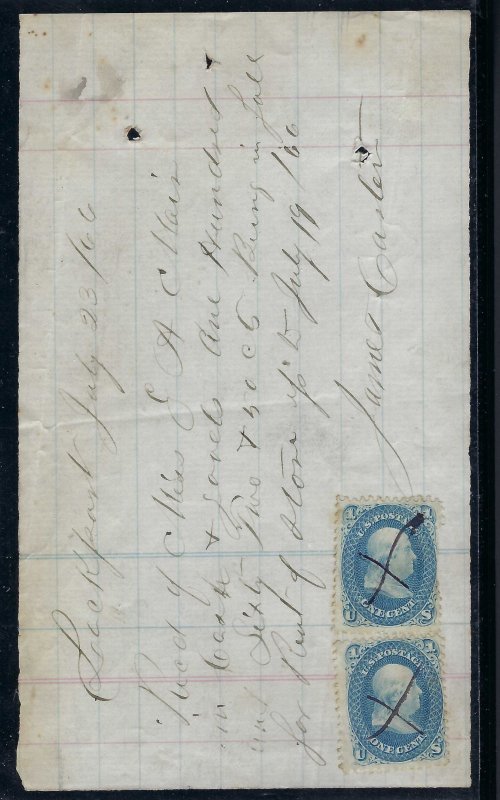 Lockport July 23/66
Recd of Miss E A Mair
in Cash & goods One Hundred
and Sixty-Two & 50 cts Being in full
for Rent of Store up to July 19/66
James Carter
U.S. POSTAGE
1 1
U ONE CENT S
U.S. POSTAGE
1 1
U ONE CENT S